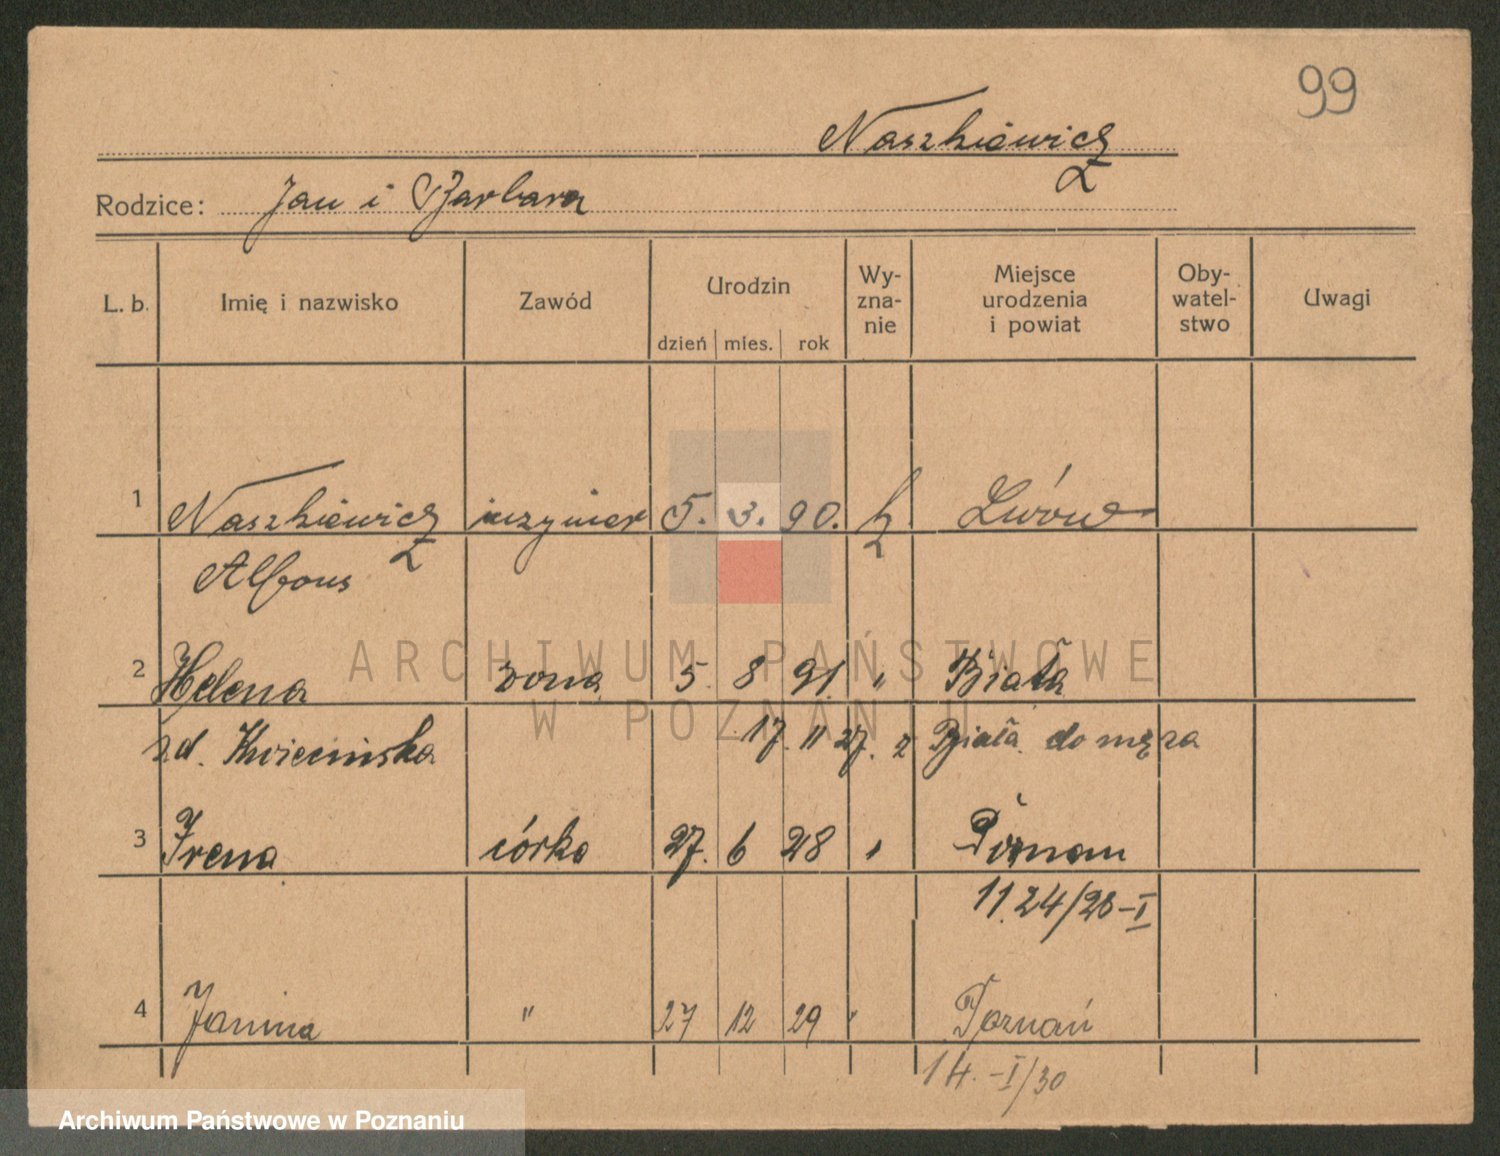 99
Naszkiewicz
Rodzice: Jan i Barbara
L. b. Imię i nazwisko Zawód Urodzin dzień mies. rok Wy-zna-nie Miejsce urodzenia i powiat Oby-watel-stwo Uwagi
1 Naszkiewicz inżynier 5. 3. 90. Lwów
Alfons
ARCHIWUM PAŃSTWOWE
2 Helena żona 5 8 91. " Biała
W POZNANIU
zd. Kwiecińska 17. 11 27. z Biała do męża
3 Irena córka 27. 6 28 " Poznań
1124/28-I
4 Janina " 27 12 29 " Poznań
14.-I/30
Archiwum Państwowe w Poznaniu